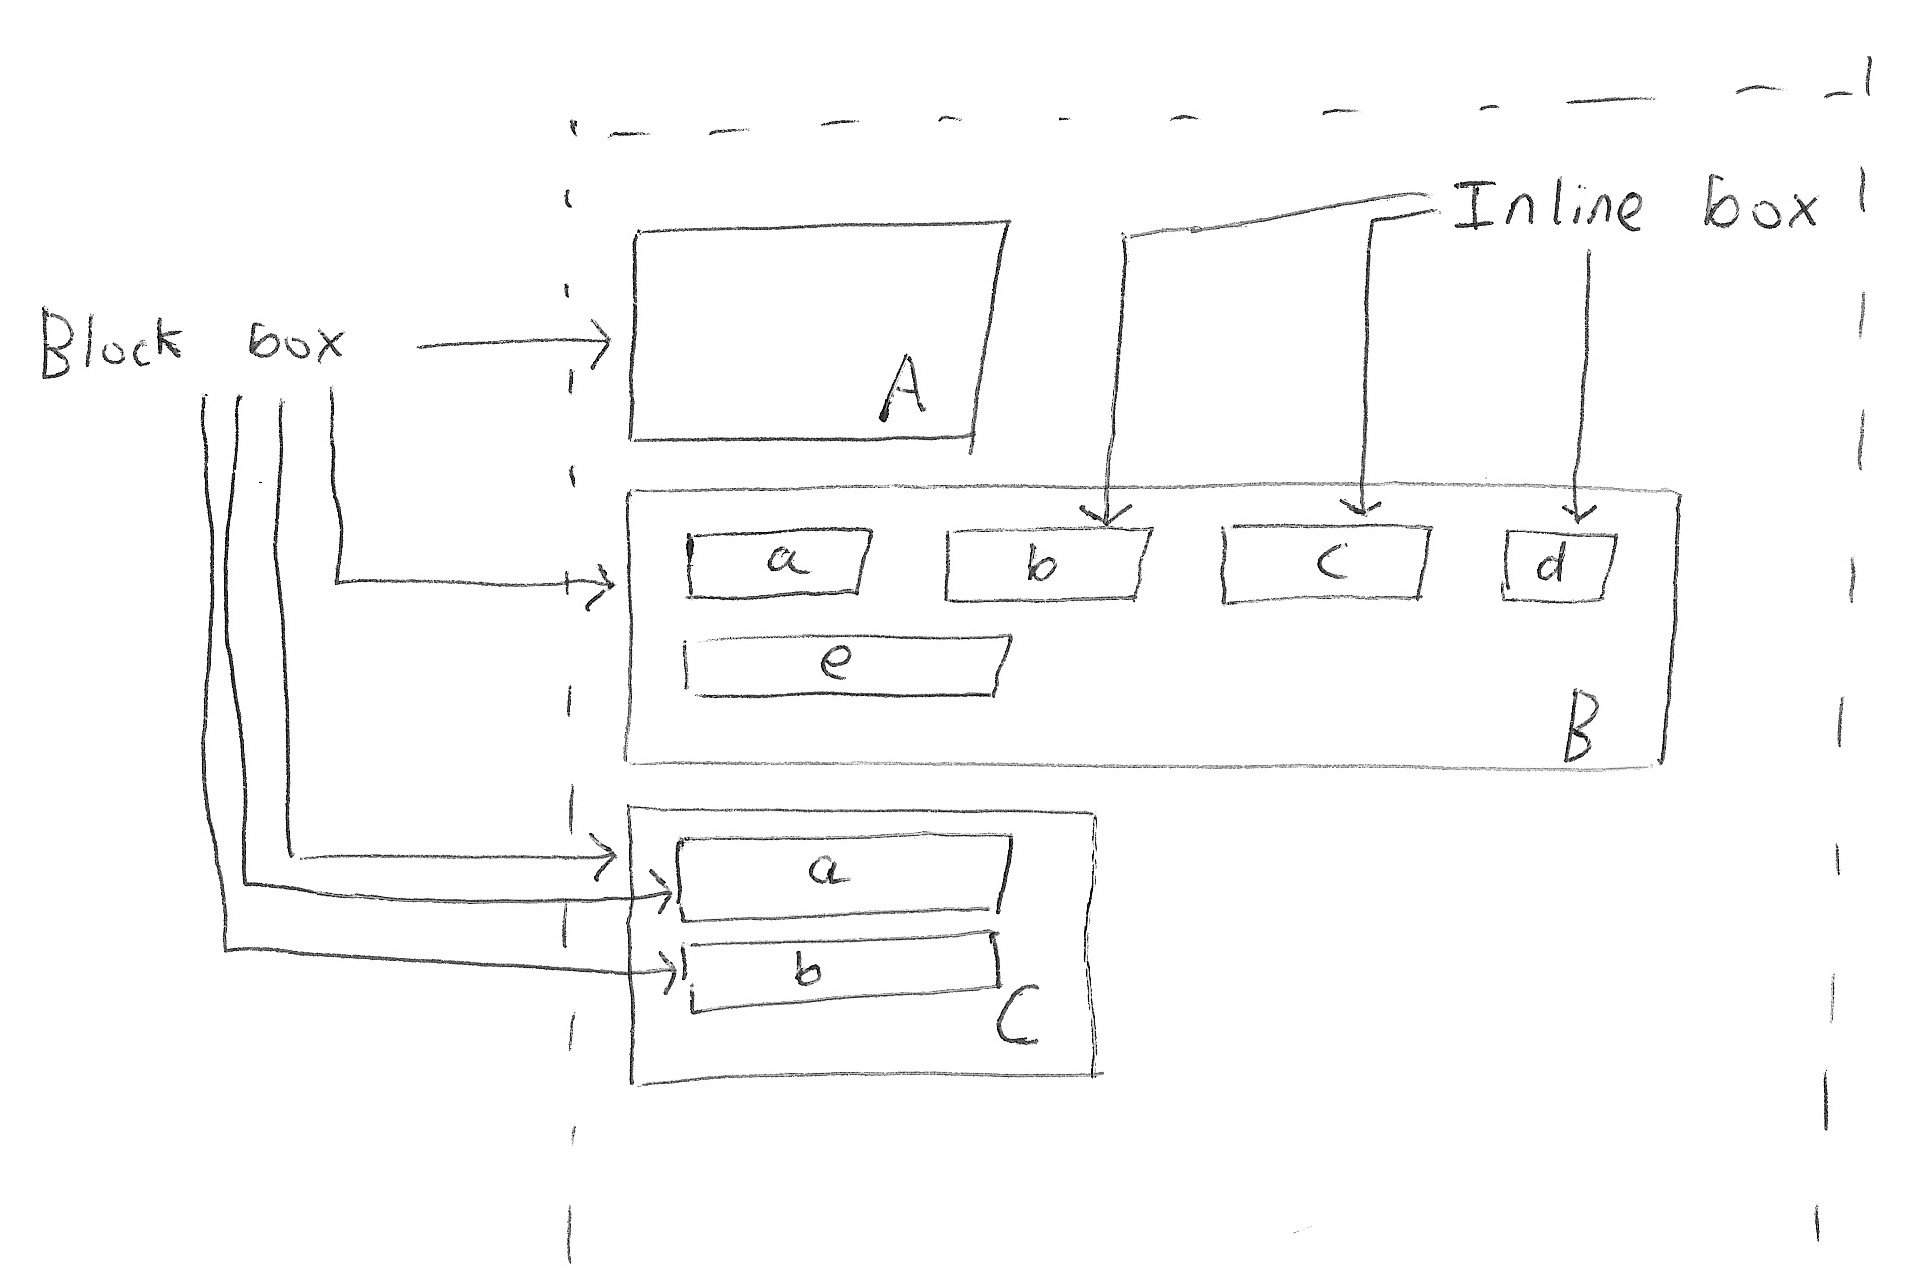 Inline box
Block box
A
a b c d
e
B
a
b
C